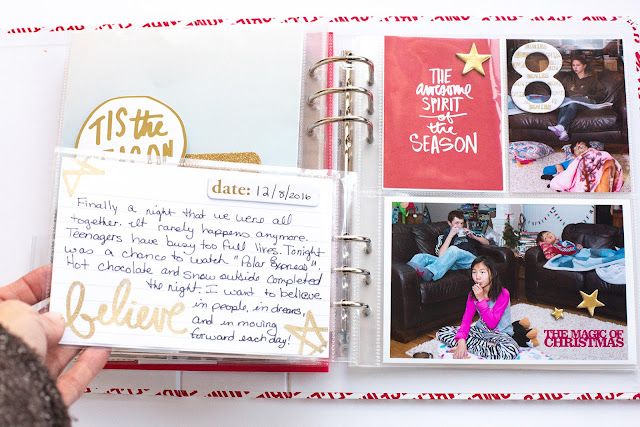 TIS the
SEASON
date: 12/8/2016
Finally a night that we were all
together. It rarely happens anymore.
Teenagers have busy too full lives. Tonight
was a chance to watch "Polar Express".
Hot chocolate and snow outside completed
the night. I want to believe
in people, in dreams,
and in moving
forward each day!
believe
THE
awesome
SPIRIT
of the
SEASON
8
THE MAGIC OF
CHRISTMAS